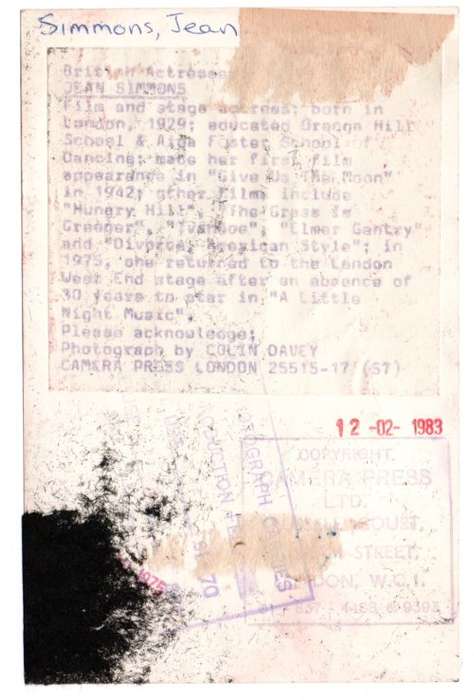 Simmons, Jean
British Actresses
JEAN SIMMONS
Film and stage actress; born in
London, 1929; educated Orange Hill
School & Aida Foster School of
Dancing; made her first film
appearance in "Give Us The Moon"
in 1942; other films include
"Hungry Hill", "The Grass is
Greener", "Ivanhoe", "Elmer Gantry"
and "Divorce, American Style"; in
1975, she returned to the London
West End stage after an absence of
30 years to star in "A Little
Night Music".
Please acknowledge;
Photograph by COLIN DAVEY
CAMERA PRESS LONDON 25515-17 (57)
12 -02- 1983
COPYRIGHT.
CAMERA PRESS
LTD.
STREET,
LONDON, W.C.1.
1975